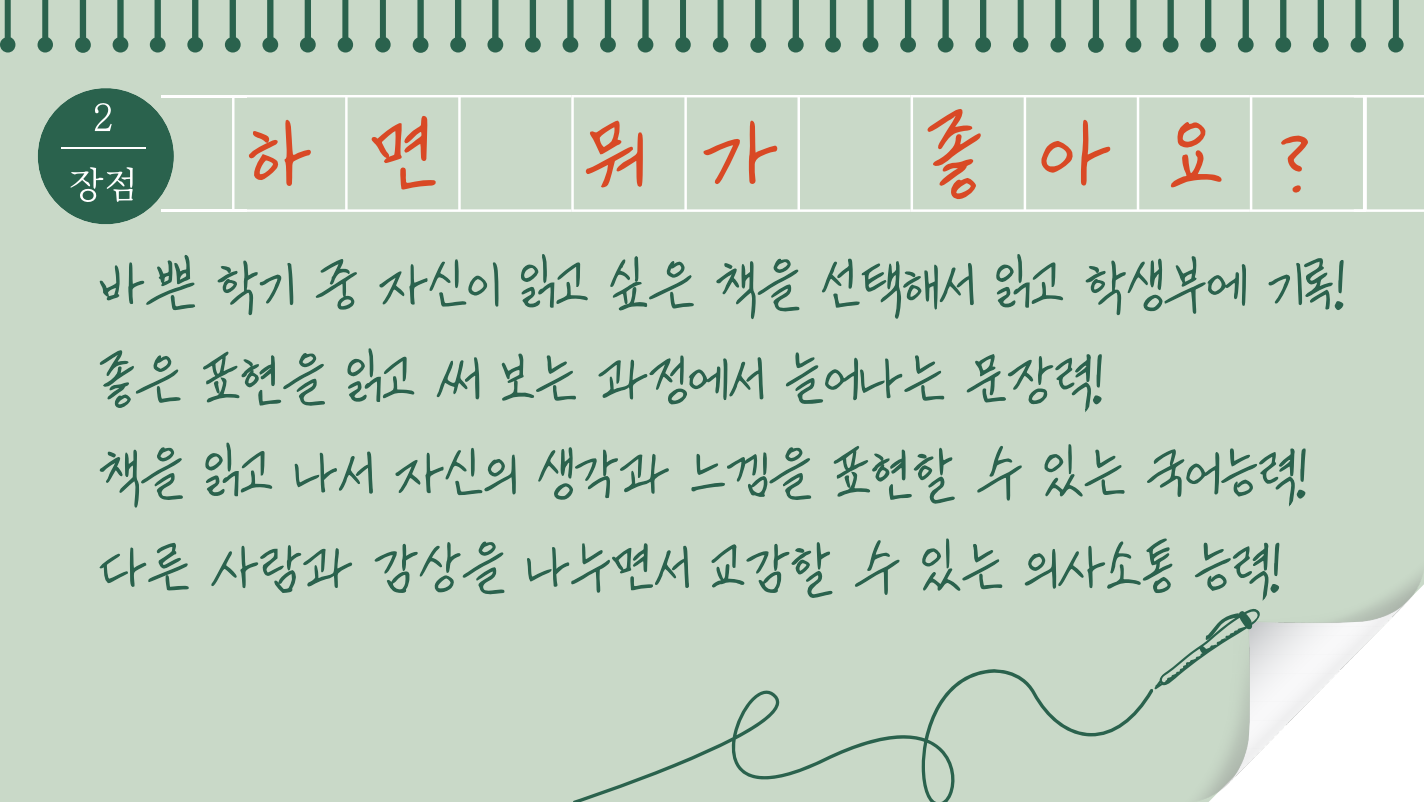 2
장점
하면 뭐가 좋아요?
바쁜 학기 중 자신이 읽고 싶은 책을 선택해서 읽고 학생부에 기록!
좋은 표현을 읽고 써 보는 과정에서 늘어나는 문장력!
책을 읽고 나서 자신의 생각과 느낌을 표현할 수 있는 국어능력!
다른 사람과 감상을 나누면서 교감할 수 있는 의사소통 능력!